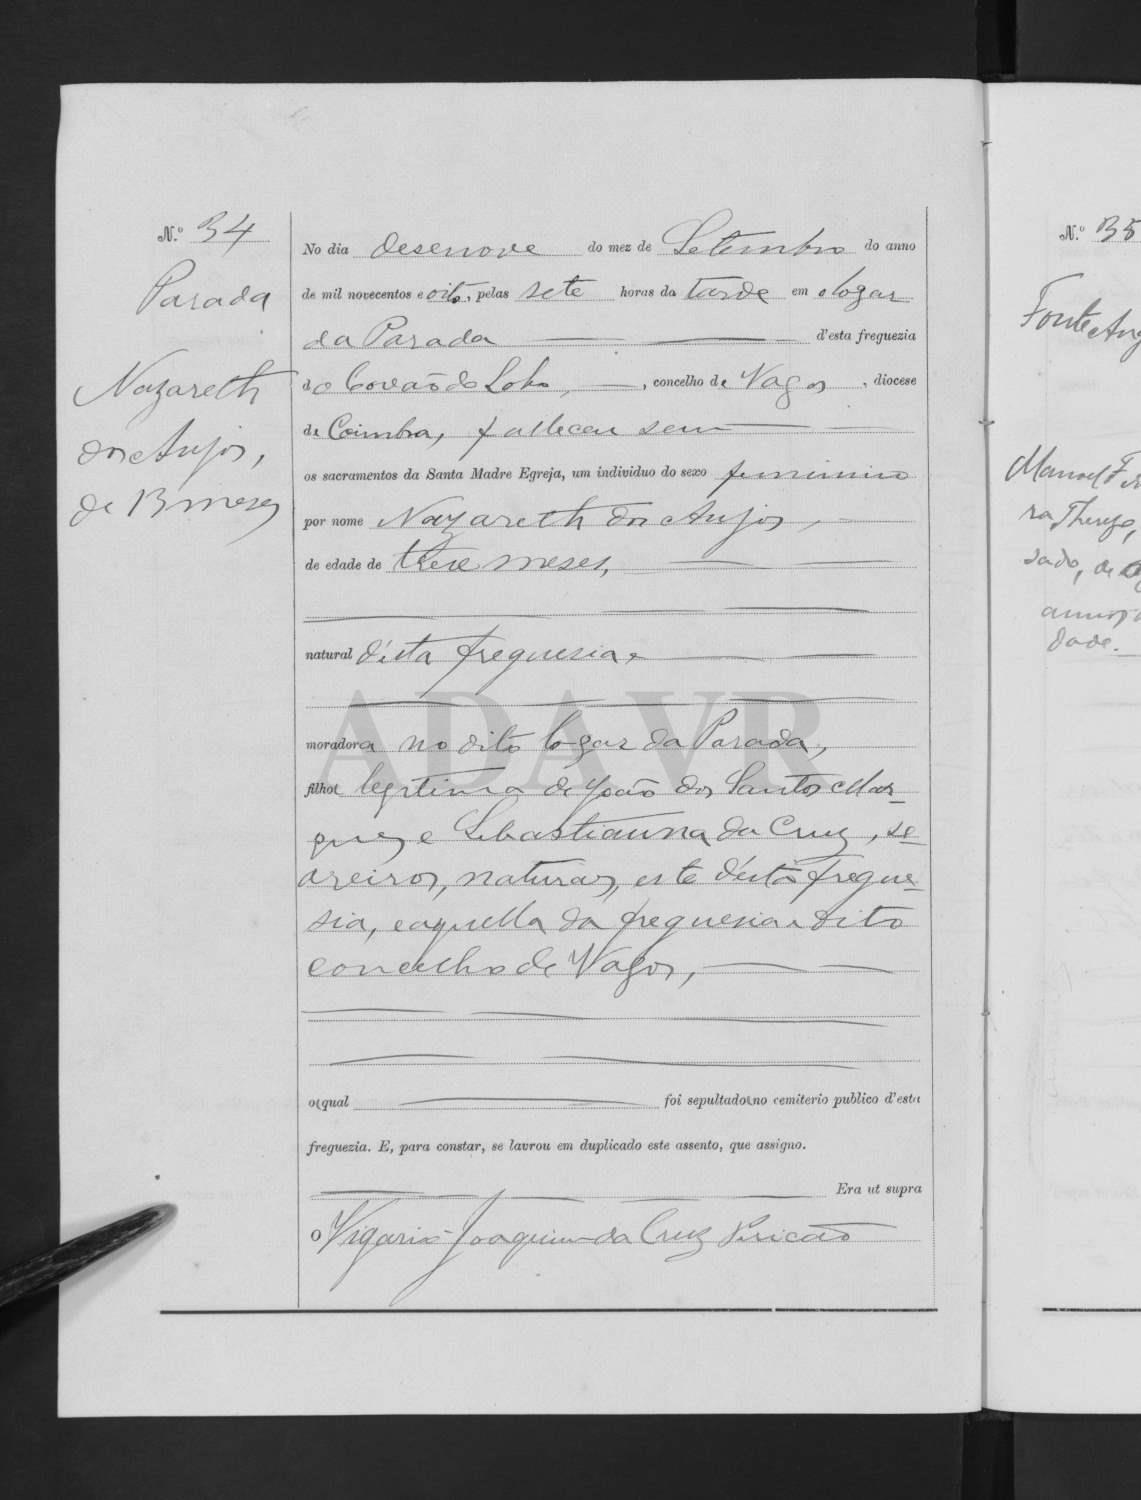 N.º 34
Parada
Nazareth
dos Anjos,
de 13 meses
No dia desenove do mez de Setembro do anno
de mil novecentos e oito, pelas sete horas da tarde em o logar
da Parada d'esta freguezia
do Covão do Lobo, concelho de Vagos, diocese
de Coimbra, falleceu sem
os sacramentos da Santa Madre Egreja, um individuo do sexo feminino
por nome Nazareth dos Anjos,
de edade de trese meses,
natural d'esta freguesia,
moradora no dito logar da Parada,
filha legitima de João dos Santos Mar-
ques e Sebastianna da Cruz, se-
areiros, naturaes, este d'esta fregue-
sia, e aquella da freguesia e dito
concelho de Vagos,
o qual foi sepultado no cemiterio publico d'esta
freguezia. E, para constar, se lavrou em duplicado este assento, que assigno.
Era ut supra
O Vigario Joaquim da Cruz Pericão
ADAVR
N.º 35
Fonte Ang
Manoel
ra Thereza,
sado, de
annos
dade.